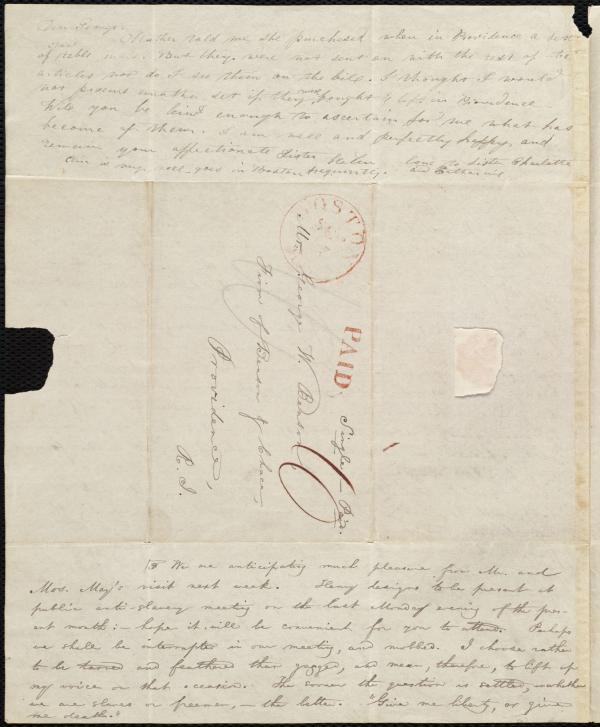 Dear George,
Mother told me she purchased when in Providence a set
of
But they were not sent on with the rest of the
articles nor do I see them on the bill. I thought I would
not procure another set if they were bought & left in Providence.
Will you be kind enough to ascertain for me what has
become of them. I am well and perfectly happy, and
remain your affectionate Sister Helen love to Sister Charlotte
is very well goes in Boston frequently. and Catharine
BOSTON
Mr. George W. Benson,
Firm of Benson & Chace,
Providence,
R. I.
PAID
Single — Paid.
6
We are anticipating much pleasure from Mr. and
Mrs. May's visit next week. Henry designs to be present at
public anti-slavery meeting on the last Monday evening of the pres-
ent month:— hope it will be convenient for you to attend. Perhaps
we shall be interrupted in our meeting, and mobbed. I choose rather
to be tarred and feathered than gagged, and mean, therefore, to lift up
my voice on that occasion. The sooner the question is settled, whether
we are slaves or freemen,— the better. "Give me liberty, or give
me death."